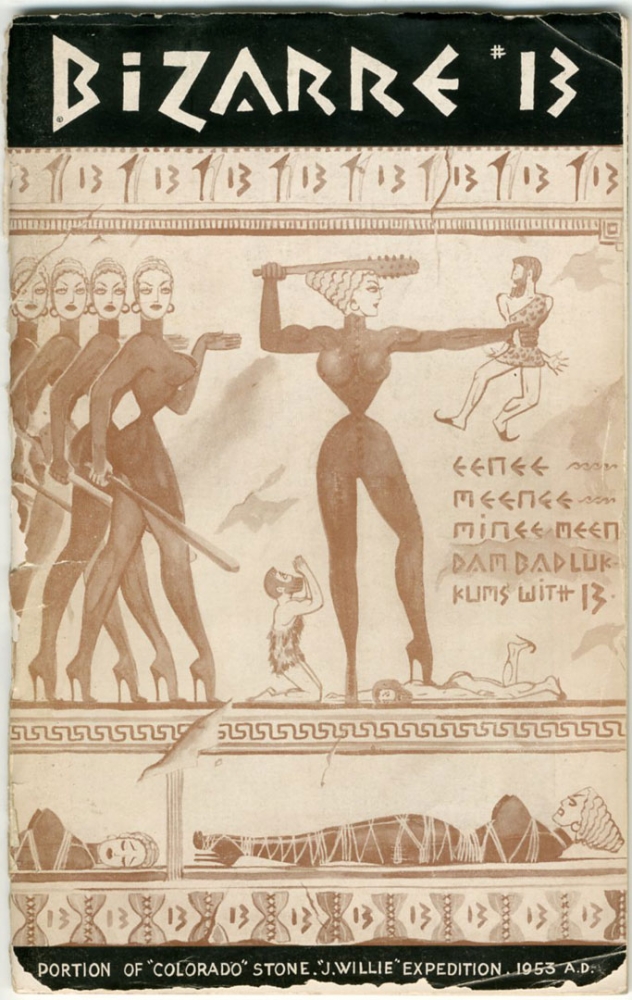 BiZARRE #13
13 13 13 13 13 13 13 13
EENEE
MEENEE
MINEE MEEN
DAM BAD LUK
KUMS WITH 13.
13 13 13 13 13 13 13 13
PORTION OF "COLORADO" STONE. "J.WILLIE" EXPEDITION. 1953 A.D.